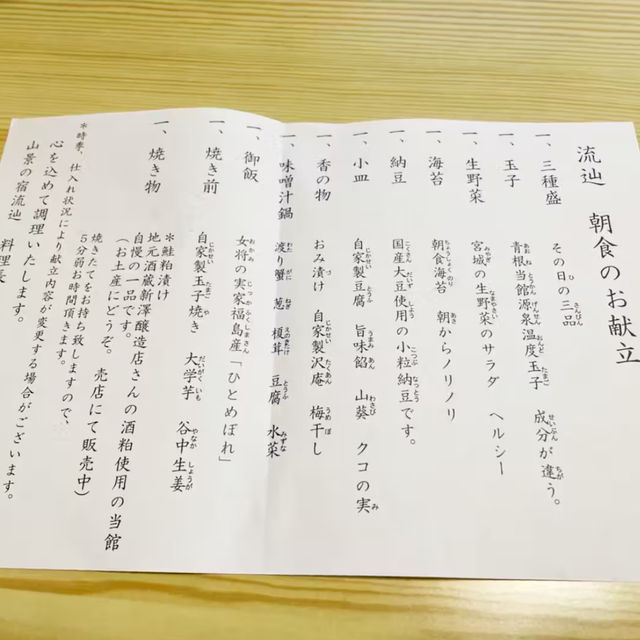 流辿 朝食のお献立
一、三種盛 その日の三品
一、玉子 青根当館源泉温度玉子 成分が違う。
一、生野菜 宮城の生野菜のサラダ ヘルシー
一、海苔 朝食海苔 朝からノリノリ
一、納豆 国産大豆使用の小粒納豆です。
一、小皿 自家製豆腐 旨味餡 山葵 クコの実
一、香の物 おみ漬け 自家製沢庵 梅干し
一、味噌汁鍋 渡り蟹 葱 榎茸 豆腐 水菜
一、御飯 女将の実家福島産「ひとめぼれ」
一、焼き前 自家製玉子焼き 大学芋 谷中生姜
一、焼き物 *鮭粕漬け
地元酒蔵新澤醸造店さんの酒粕使用の当館
自慢の一品です。
(お土産にどうぞ。 売店にて販売中)
焼きたてをお持ち致しますので、
5分弱お時間頂きます。
*時季、仕入れ状況により献立内容が変更する場合がございます。
心を込めて調理いたします。
山景の宿流辿 料理長